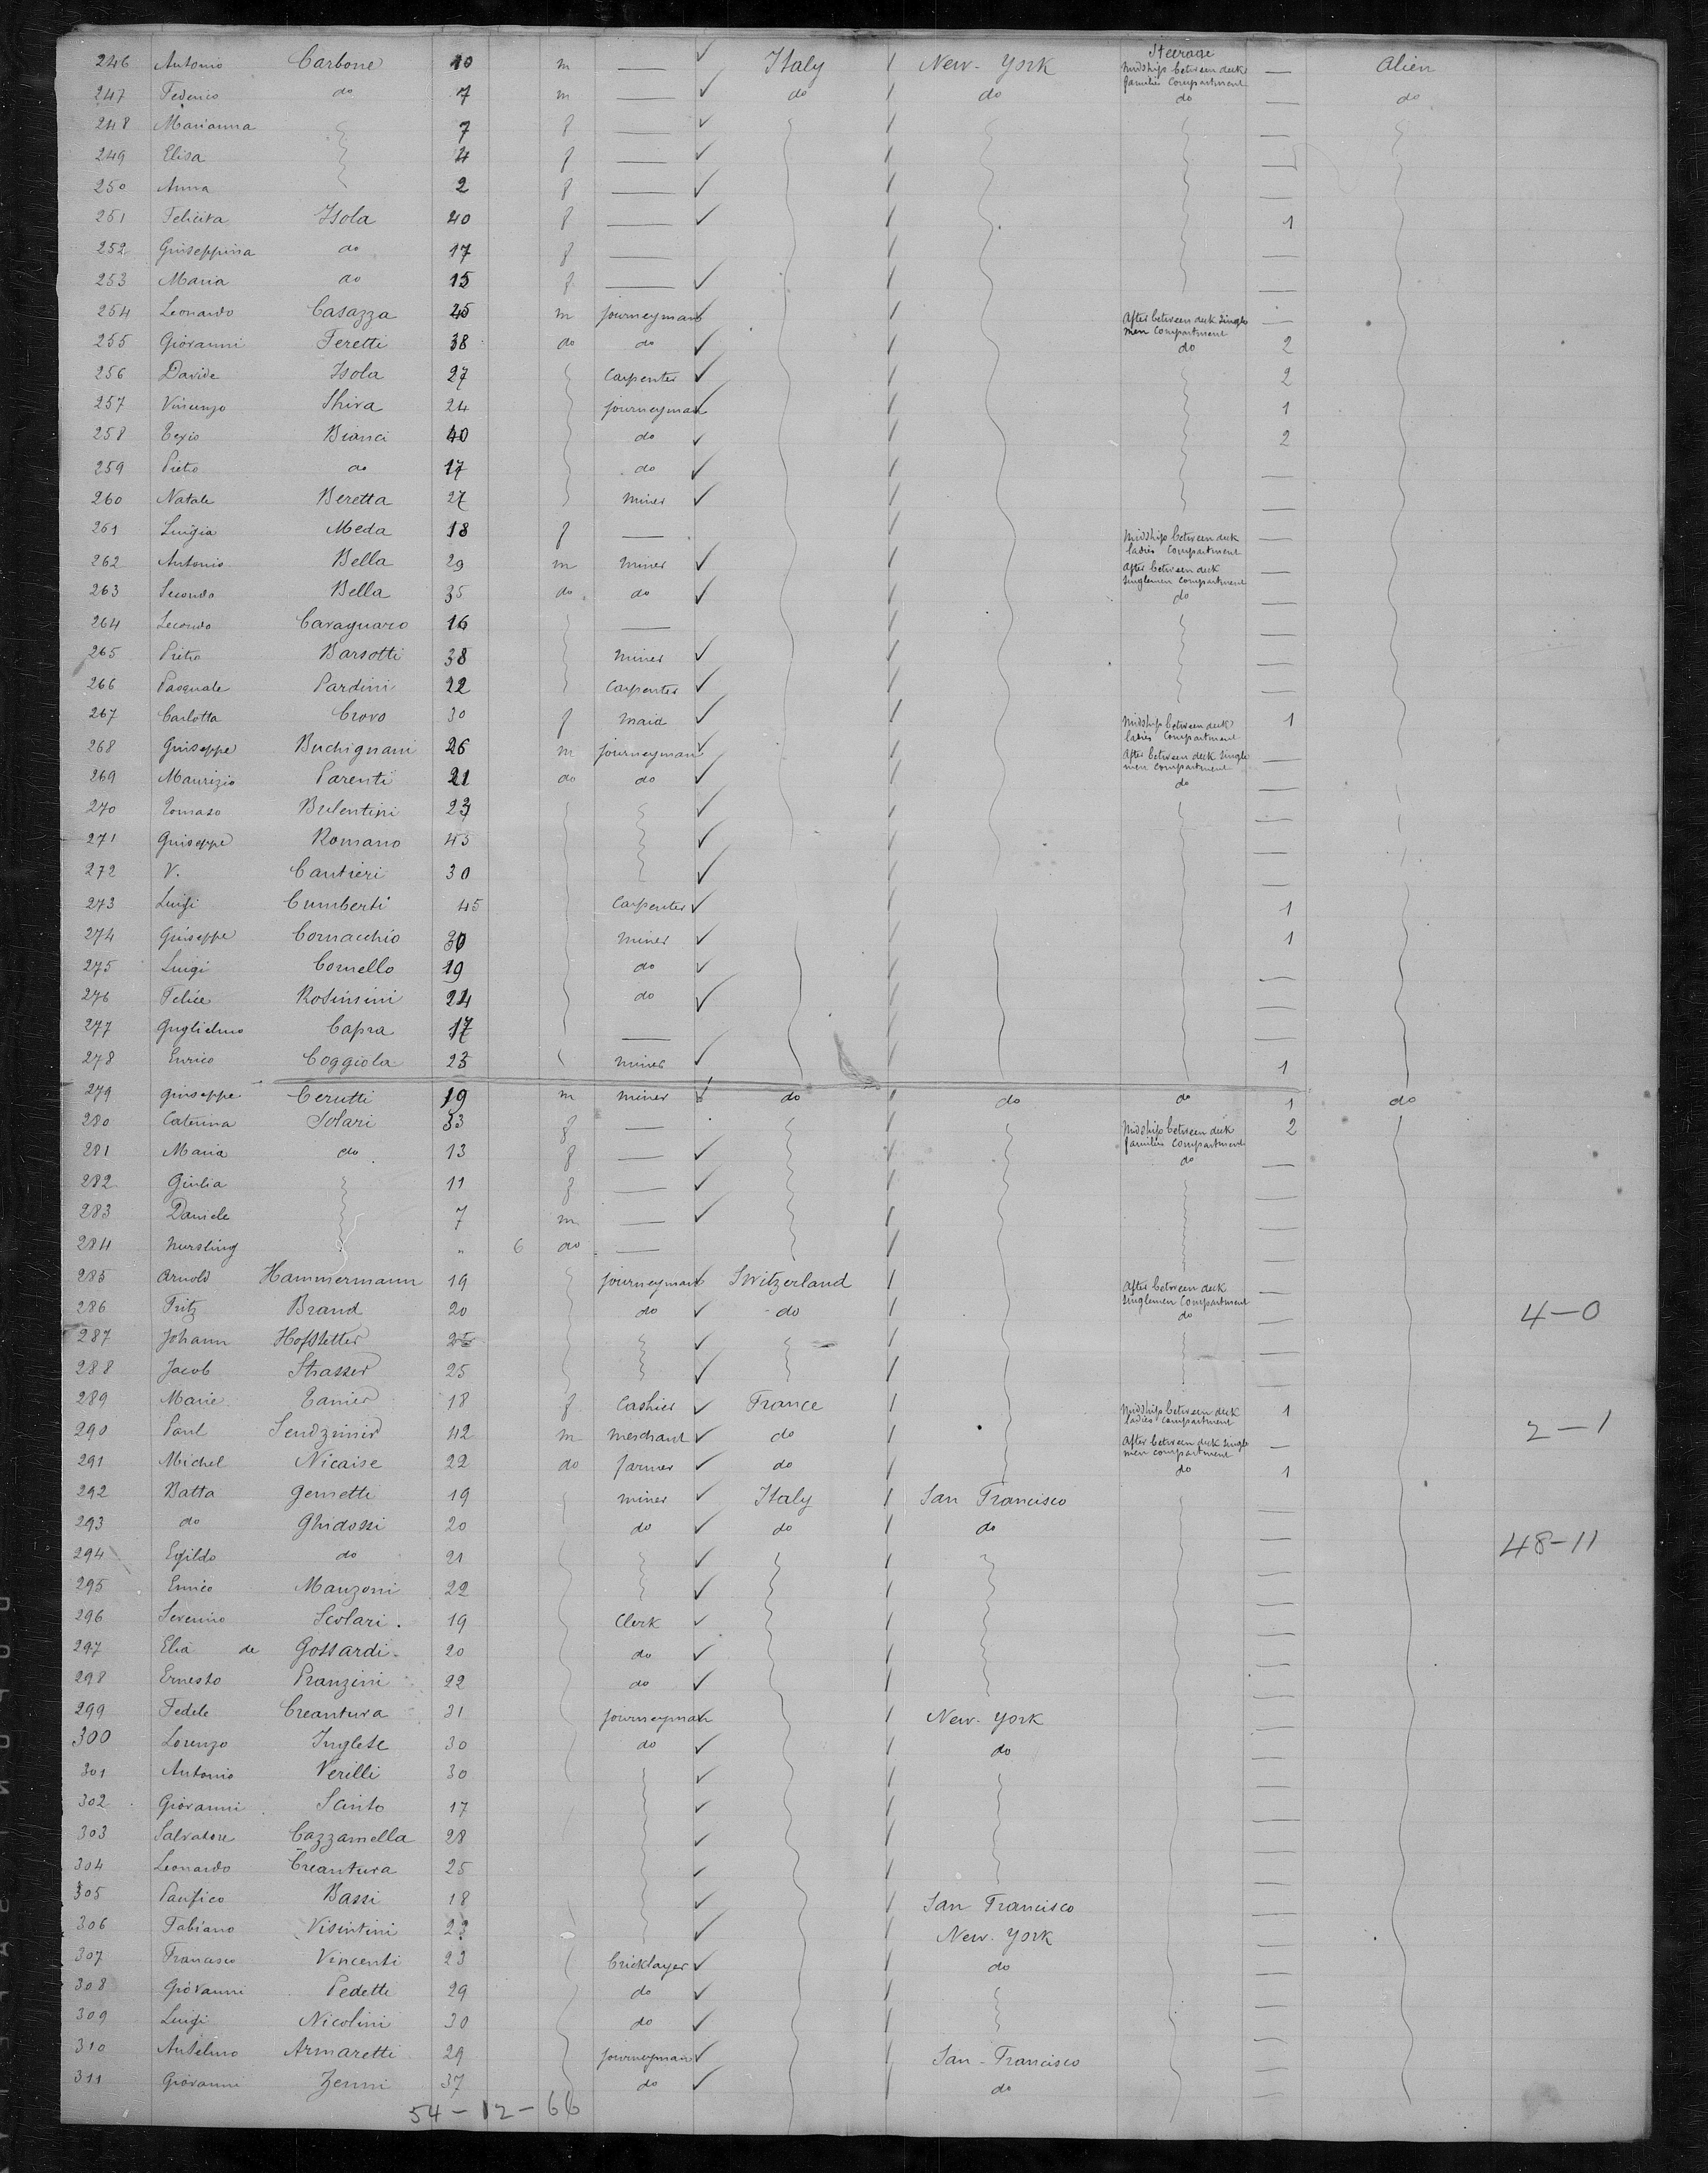 Steerage
246 Antonio Carbone 10 m — Italy New-York Midship between deck families Compartment — Alien
247 Federico do 7 m — do do do — do
248 Marianna 7 f — —
249 Elisa 4 f — —
250 Anna 2 f — —
251 Felicita Isola 40 f — 1
252 Guiseppina do 17 f — —
253 Maria do 15 f — —
254 Leonardo Casazza 25 m journeyman After between deck single men Compartment —
255 Giovanni Feretti 38 do do do 2
256 Davide Isola 27 Carpenter 2
257 Vincenzo Shira 24 journeyman 1
258 Bianci 40 do 2
259 Pietro do 17 do —
260 Natale Beretta 27 miner —
261 Luigia Meda 18 f — Midship between deck ladies Compartment —
262 Antonio Bella 29 m miner After between deck singlemen Compartment —
263 Secondo Bella 35 do do do —
264 Secondo Cavagnaro 16 — —
265 Pietro Barsotti 38 miner —
266 Pasquale Pardini 22 Carpenter —
267 Carlotta Crovo 30 f maid Midship between deck ladies Compartment 1
268 Guiseppe Buchignani 26 m journeyman After between deck single men compartment —
269 Maurizio Parenti 21 do do do —
270 Tomaso Bulentini 23 —
271 Guiseppe Romano 45 —
272 V. Cantieri 30 —
273 Luigi Cumberti 45 Carpenter 1
274 Guiseppe Cornacchio 30 miner 1
275 Luigi Cornello 19 do —
276 Felice Rosinsini 24 do —
277 Guglielmo Capra 17 — —
278 Enrico Coggiola 23 miner 1
279 Guiseppe Cerutti 19 m miner do do do 1 do
280 Caterina Solari 33 f — Midship between deck families Compartment 2
281 Maria do 13 f — do —
282 Giulia 11 f — —
283 Daniele 7 m — —
284 Nursling " 6 do — —
285 Arnold Hammermann 19 journeyman Switzerland After between deck singlemen Compartment —
286 Fritz Brand 20 do do do — 4-0
287 Johann Hofstetter —
288 Jacob Strasser 25 —
289 Marie Tanier 18 f Cashier France Midship between deck ladies compartment 1
290 Paul Sendzimir 42 m merchant do After between deck single men compartment — 2-1
291 Michel Nicaise 22 do farmer do do 1
292 Batta Gemetti 19 miner Italy San Francisco —
293 do Ghidossi 20 do do do — 48-11
294 Egildo do 21 —
295 Enrico Manzoni 22 —
296 Severino Scolari. 19 Clerk —
297 Elia de Gottardi 20 do —
298 Ernesto Pranzini 22 do —
299 Fedele Creantura 31 journeyman New-York —
300 Lorenzo Inglese 30 do do —
301 Antonio Verilli 30 —
302 Giovanni Scinto 17 —
303 Salvatore Cazzamella 28 —
304 Leonardo Creantura 25 —
305 Pacifico Bassi 18 San Francisco —
306 Fabiano Visintini 23 New-York —
307 Francisco Vincenti 23 bricklayer do —
308 Giovanni Pedetti 29 do —
309 Luigi Nicolini 30 do —
310 Anselmo Armaretti 29 journeyman San-Francisco —
311 Giovanni Zenni 37 do do —
54-12-66